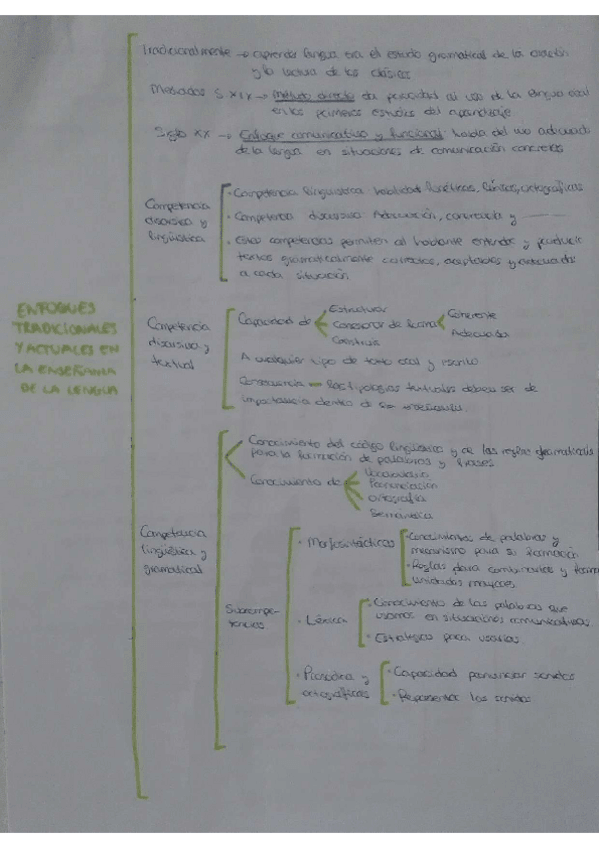 ENFOQUES
TRADICIONALES
Y ACTUALES EN
LA ENSEÑANZA
DE LA LENGUA
Tradicionalmente → aprender lengua era el estudio gramatical de la oración
y la lectura de los clásicos
Mediados S. XIX → Método directo da prioridad al uso de la lengua oral
en los primeros estadios del aprendizaje
Siglo XX → Enfoque comunicativo y funcional: habla del uso adecuado
de la lengua en situaciones de comunicación concretas
Competencia
discursiva y
lingüística
· Competencia lingüística: habilidad fonéticas, léxicas, ortográficas
· Competencia discursiva: Adecuación, coherencia y
· Estas competencias permiten al hablante entender y producir
textos gramaticalmente correctos, aceptados y adecuados
a cada situación
Competencia
discursiva y
textual
Capacidad de
Estructurar
Conectar de forma
Construir
Coherente
Adecuada
A cualquier tipo de texto oral y escrito
Consecuencia → las tipologías textuales deben ser de
importancia dentro de
Competencia
lingüística y
gramatical
Conocimiento del código lingüístico y de las reglas gramaticales
para la formación de palabras y frases
Conocimiento de
Vocabulario
Pronunciación
Ortografía
Semántica
Subcompe-
tencias
· Morfosintácticas
· Conocimientos de palabras y
mecanismo para su formación
· Reglas para combinarlas y formar
unidades mayores
· Léxica
· Conocimiento de las palabras que
usamos en situaciones comunicativas
· Estrategias para usarlas
y
ortográficas
· Capacidad pronunciar sonidos
· Representar los sonidos